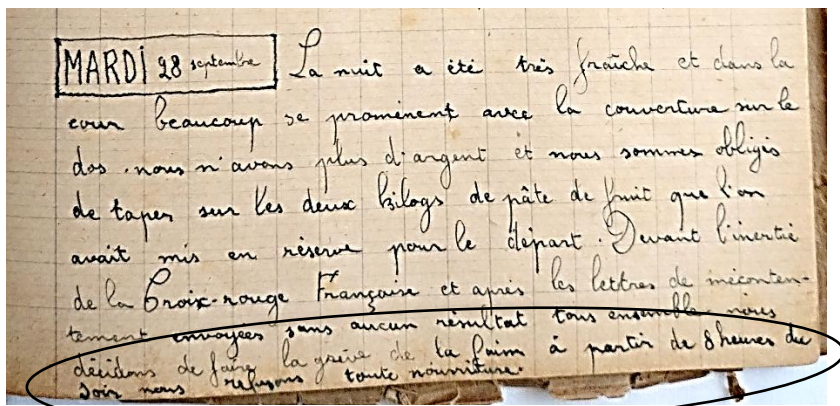 MARDI 28 septembre La nuit a été très fraîche et dans la
cour beaucoup se promènent avec la couverture sur le
dos. nous n'avons plus d'argent et nous sommes obligés
de taper sur les deux kilogs de pâte de fruit que l'on
avait mis en réserve pour le départ. Devant l'inertie
de la Croix-rouge Française et après les lettres de méconten-
tement envoyées sans aucun résultat tous ensemble nous
décidons de faire la grève de la faim à partir de 8 heures du
soir nous refusons toute nourriture.